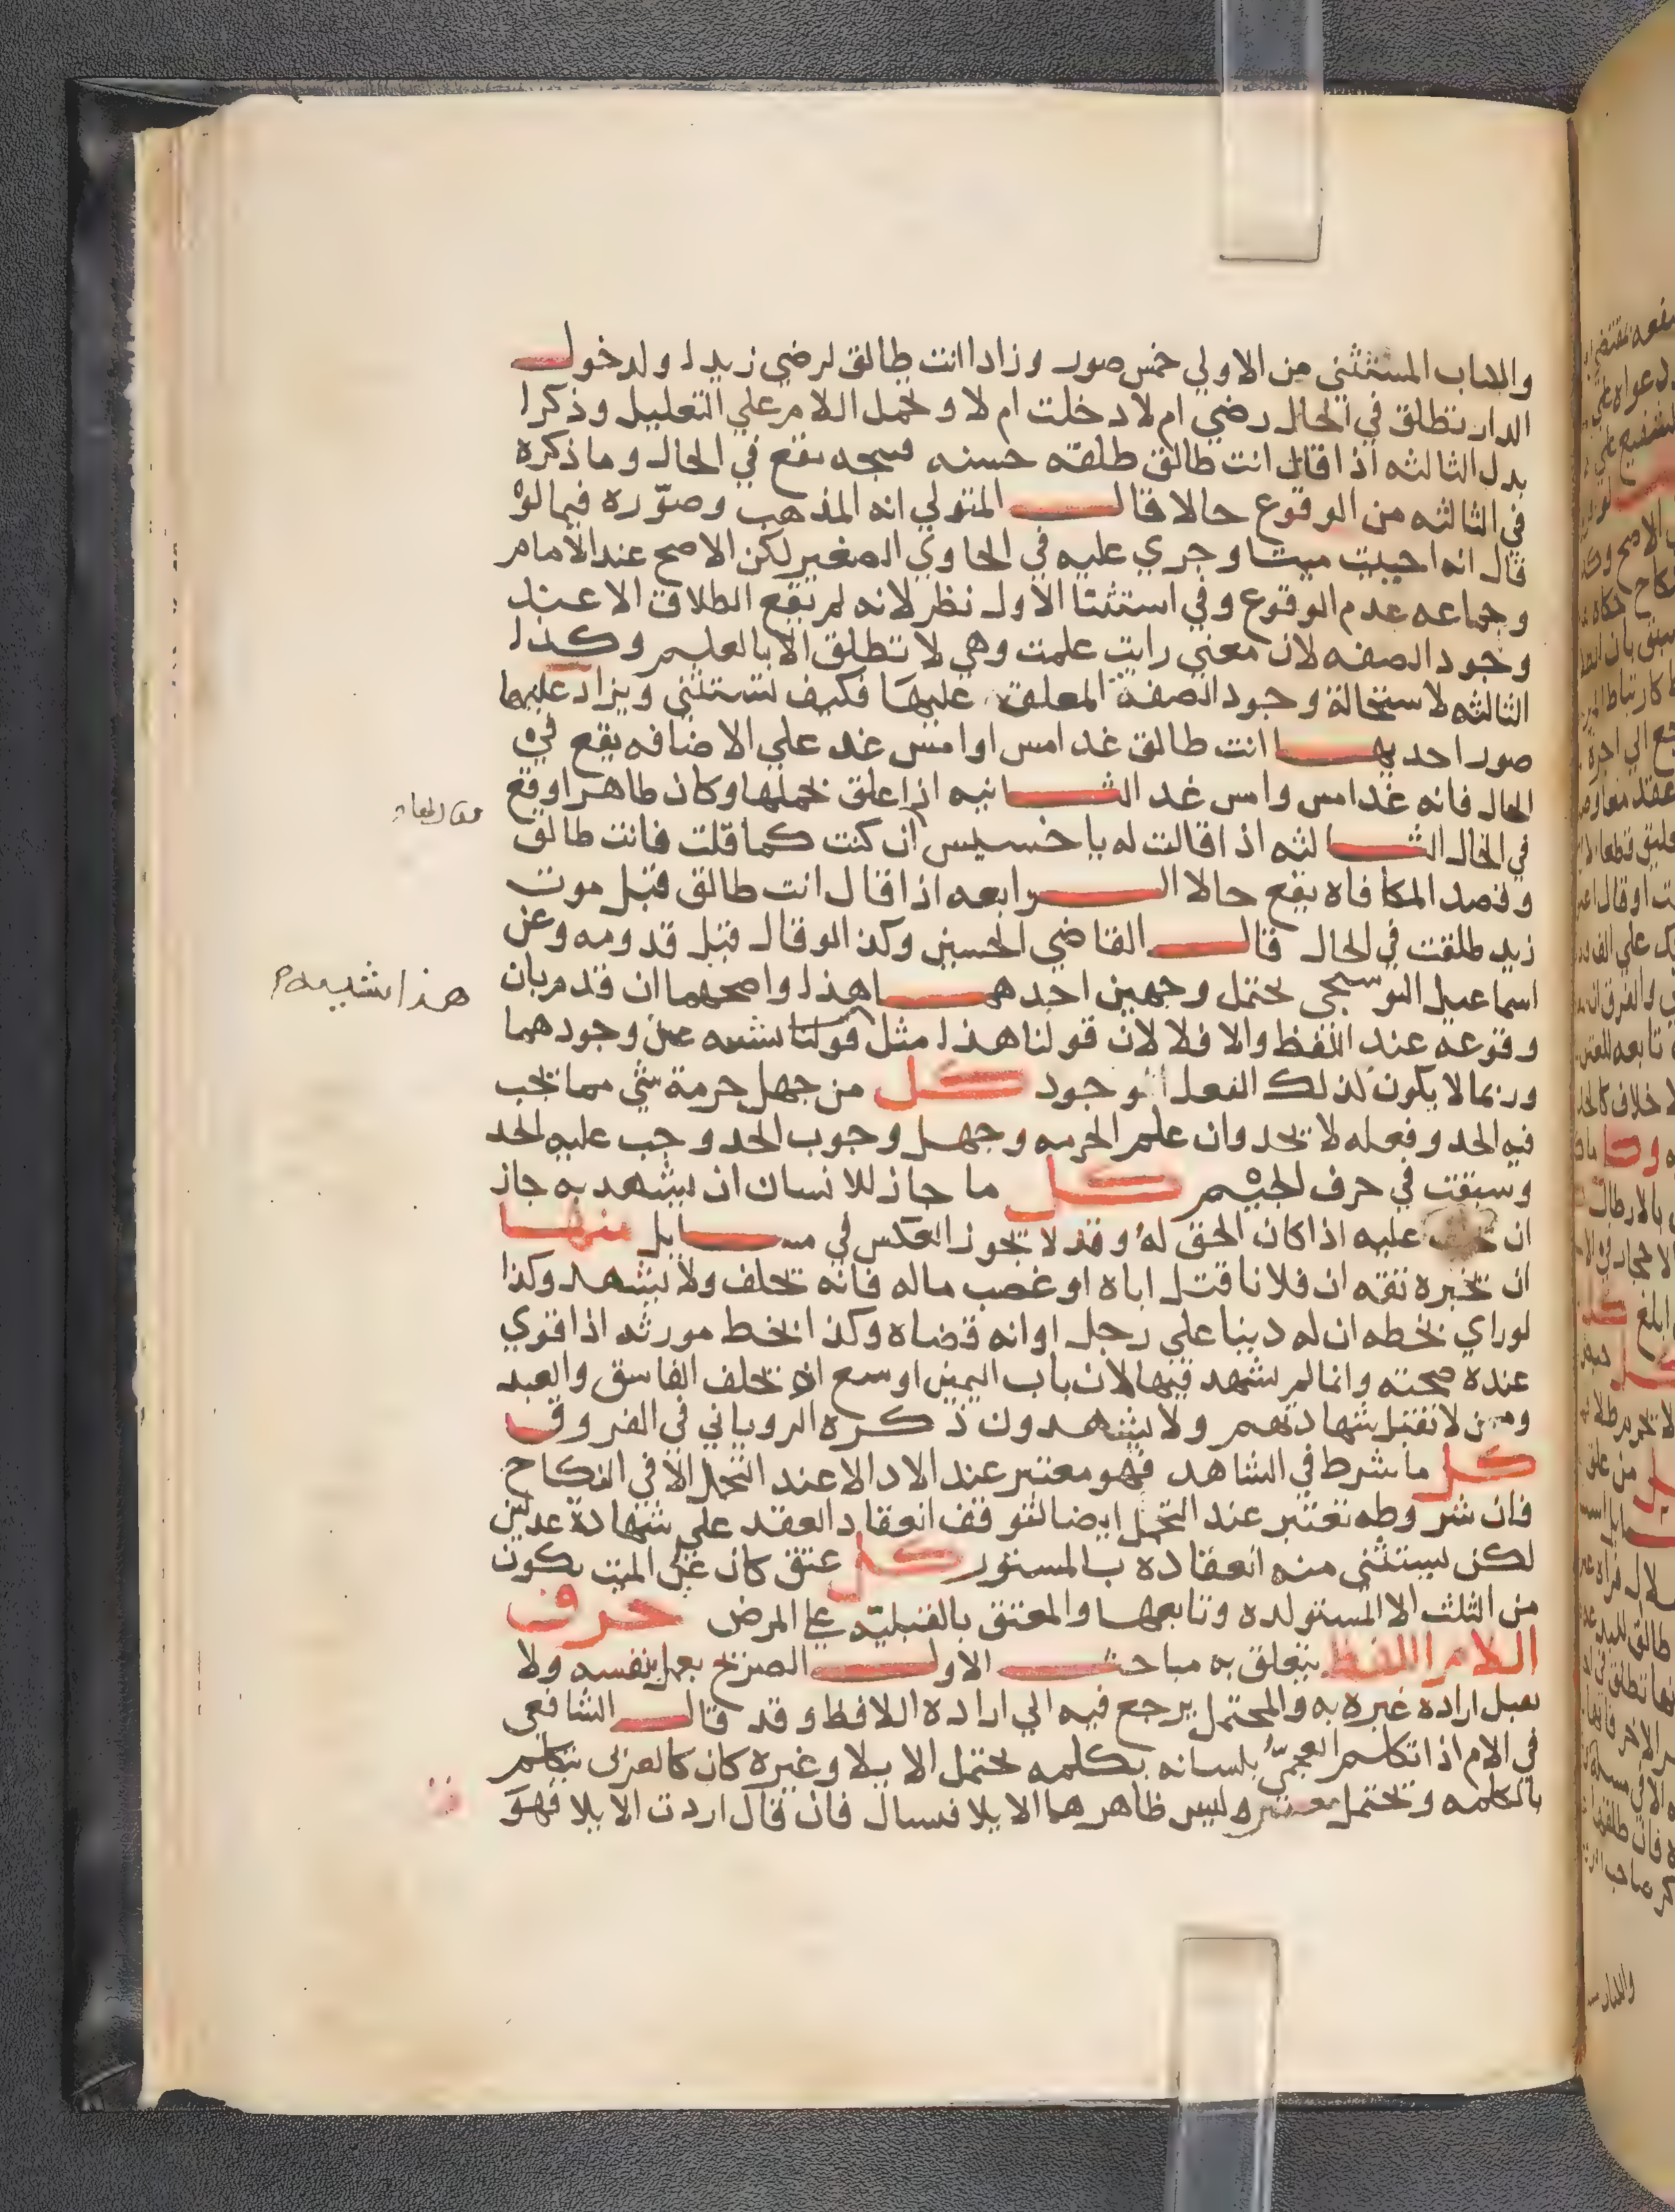 واللباب المستثني من الاولي خمس صور وزادا انت طالق لرضي زيدا ولدخول
الدار تطلق في الحال رضي ام لا دخلت ام لا ونحمل اللام علي التعليل وذكرا
بدل الثالثه اذا قال انت طالق طلقه حسنه قبيحه تقع في الحال وما ذكره
في الثالثه من الوقوع حالا قال المتولي انه المذهب وصوّره فيما لو
قال ان احييت ميتا وجري عليه في الحاوي الصغير لكن الاصح عند الامام
وجماعه عدم الوقوع وفي استثنا الاول نظر لانه لم يقع الطلاق الا عند
وجود الصفه لان معني رايت علمت وهي لا تطلق الا بالعلم وكذا
الثالثه لاستحالة وجود الصفة المعلق عليها فكيف تستثني ويزاد عليها
صور احديها انت طالق غد امس او امس غد علي الاضافه يقع في
الحال فانه غد امس وامس غد الثانيه اذا علق بحملها وكان ظاهرا وقع
في الحال الثالثه اذا قالت له يا خسيس ان كنت كما قلت فانت طالق
وقصد المكافاه يقع حالا الرابعه اذا قال انت طالق قبل موت
زيد طلقت في الحال قال القاضي الحسين وكذا لو قال قبل قدومه وعن
اسماعيل البوسنجي يحتمل وجهين احدهما هذا واصحهما ان قدم بان
وقوعه عند اللفظ والا فلا لان قولنا هذا مثل قولنا يشبه عن وجودهما
وربما لا يكون لذلك الفعل وجود كل من جهل حرمة شي مما يجب
فيه الحد وفعله لا يحد وان علم الحرمه وجهل وجوب الحد وجب عليه الحد
وسبقت في حرف الجيم كل ما جاز للانسان ان يشهد به جاز
ان يحلف عليه اذا كان الحق له وقد لا يجوز العكس في مسايل منها
ان يخبره ثقه ان فلانا قتل اباه او غصب ماله فانه يحلف ولا يشهد وكذا
لو راي بخطه ان له دينا علي رجل او انه قضاه وكذا بخط مورثه اذا قوي
عنده صحته وانما لم يشهد فيها لان باب اليمين اوسع اذ يحلف الفاسق والعبد
ومن لا تقبل شهادتهم ولا يشهدون ذكره الروياني في الفروق
كل ما شرط في الشاهد فهو معتبر عند الادا لا عند التحمل الا في النكاح
فان شروطه تعتبر عند التحمل ايضا لتوقف انعقاد العقد علي شهادة عدلين
لكن يستثني منه انعقاده بالمستور كل عتق كان عن الميت يكون
من الثلث الا المستولده وتابعها والمعتق بالقبليه علي المرض حرف
اللام اللفظ يتعلق به مباحث الاول الصريح يعمل بنفسه ولا
يقبل اراده غيره به والمحتمل يرجع فيه الي اراده اللافظ وقد قال الشافعي
في الام اذا تكلم العجميّ بلسانه بكلمه تحتمل الايلا وغيره كان كالعربي يتكلم
بالكلمه وتحتمل معنيين وليس ظاهرهما الايلا فيسال فان قال اردت الايلا فهو
هذا يشبه